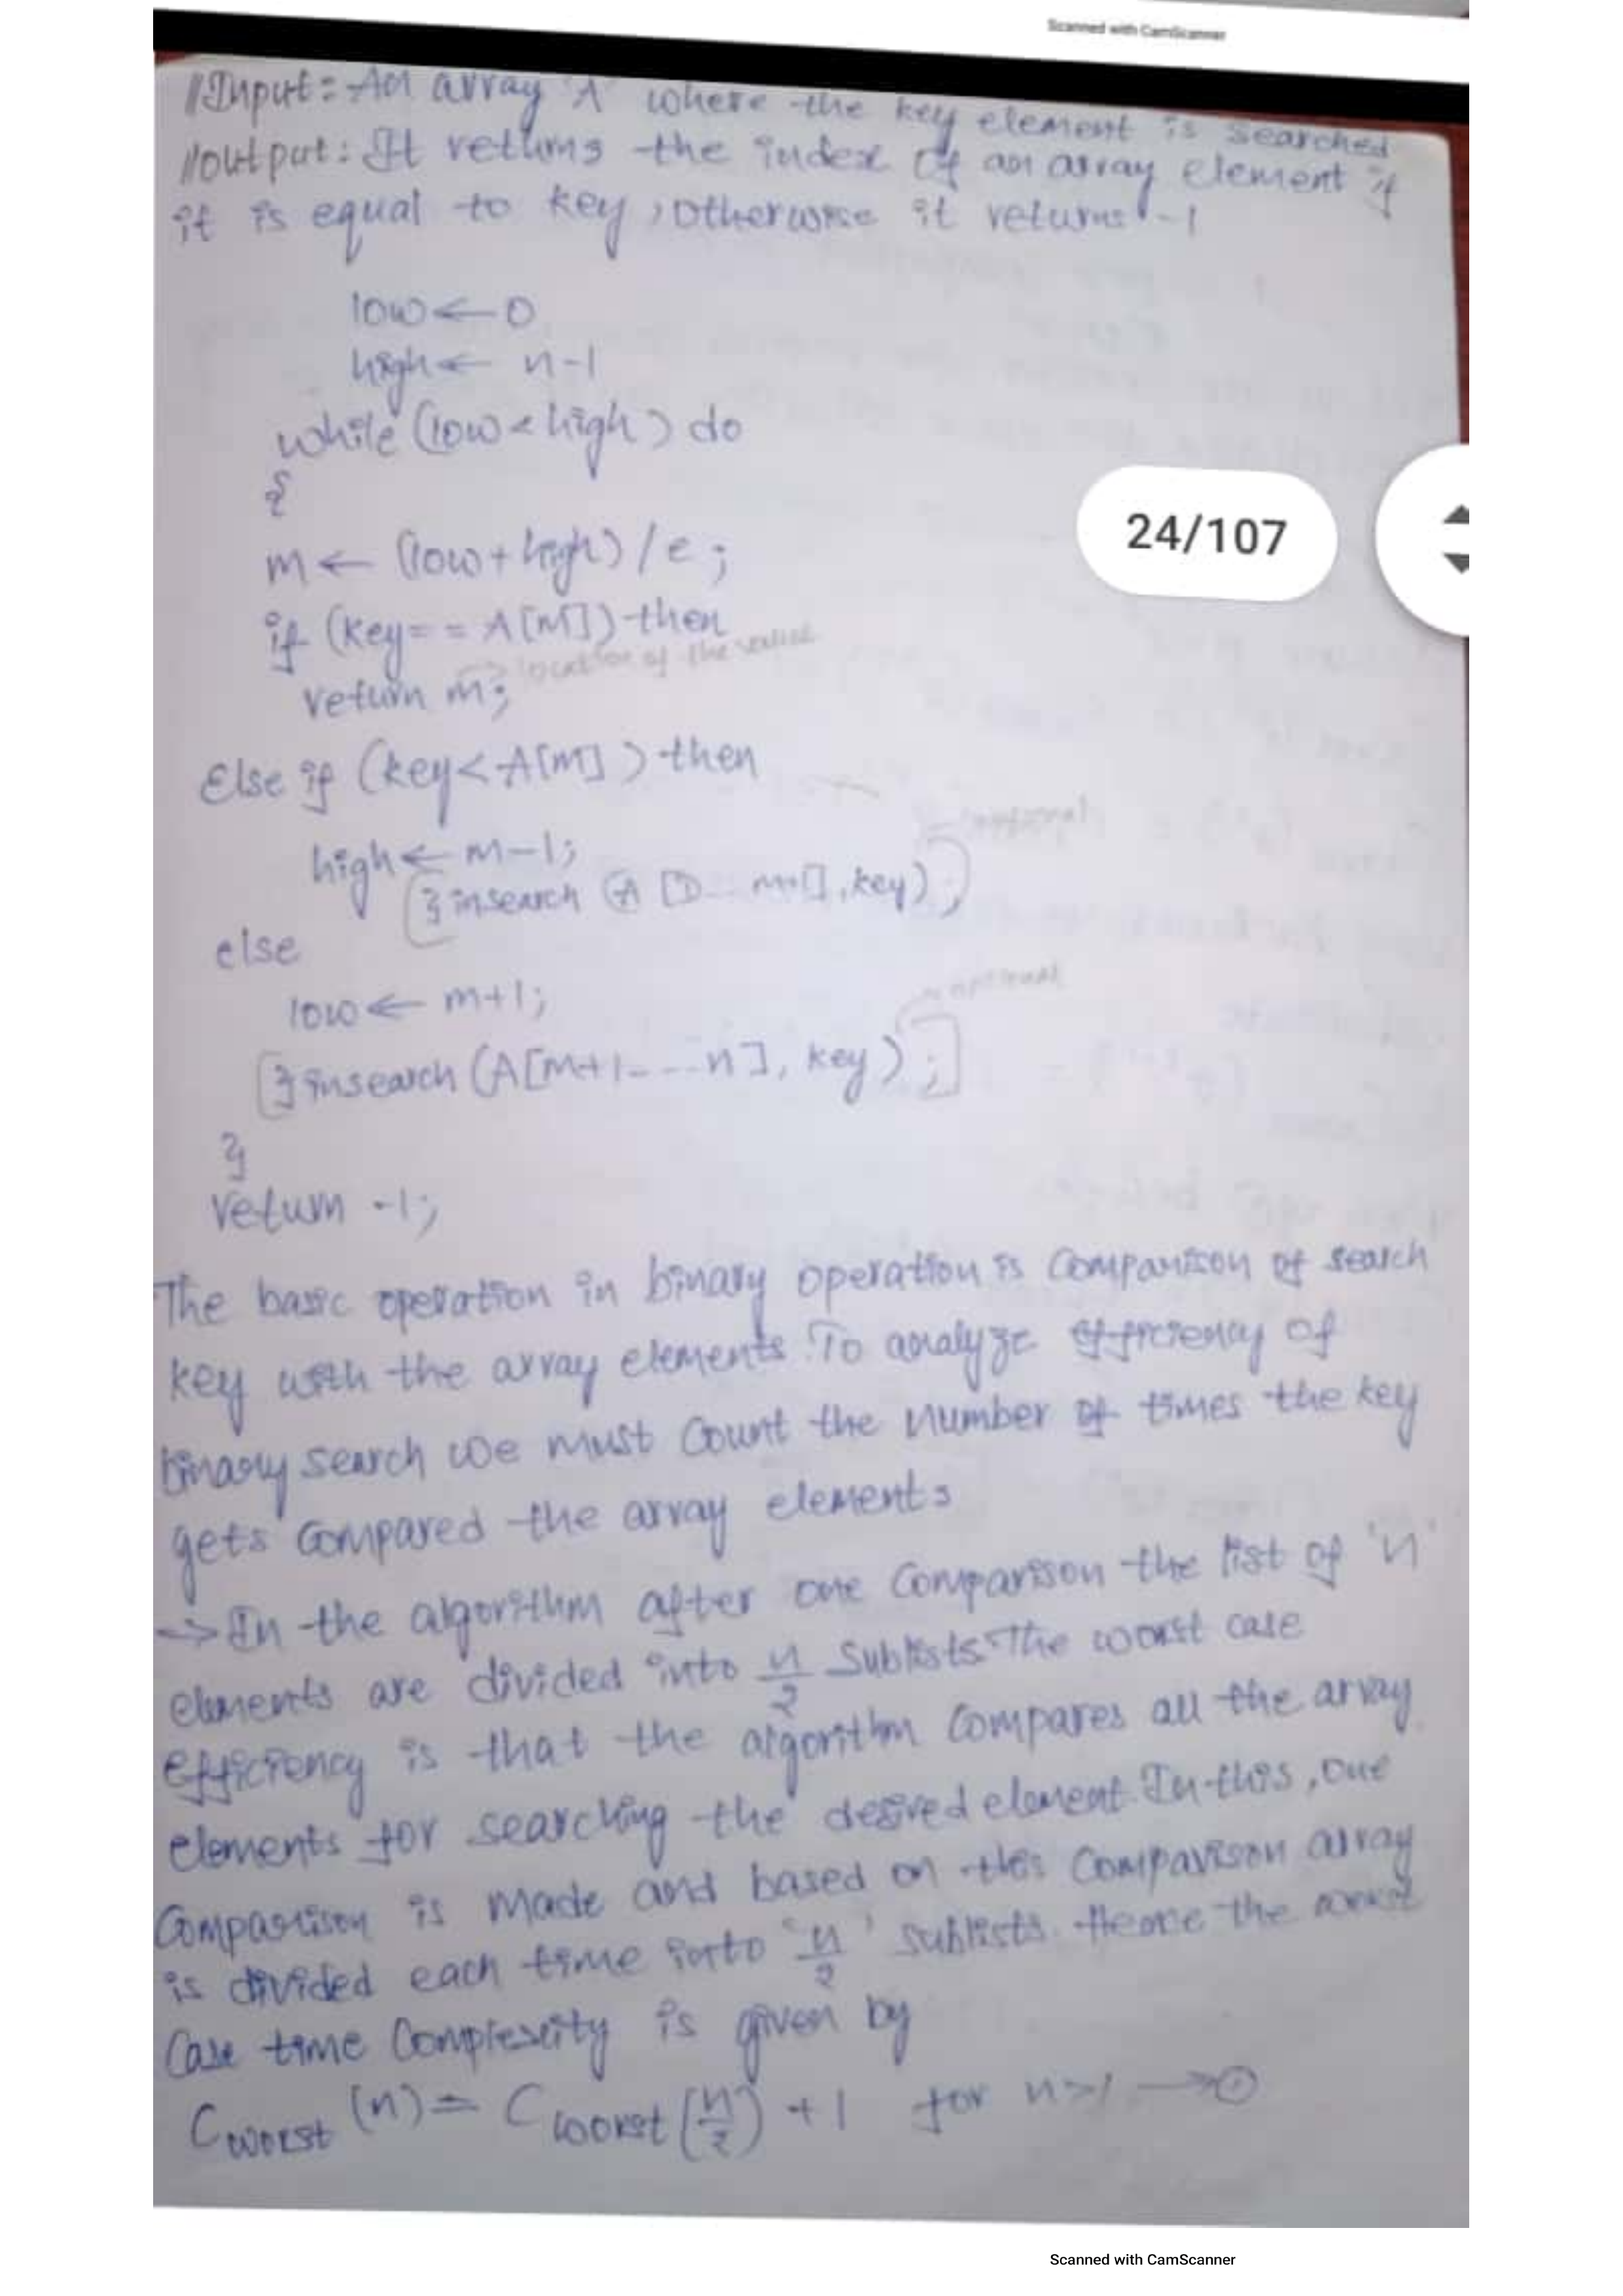 Scanned with CamScanner
//Input:- An array 'A' where the key element is searched
//output: It returns the index of an array element if
it is equal to key, otherwise it returns -1
low ← 0
high ← n-1
while (low < high) do
{
24/107
m ← (low + high) / 2;
if (key == A[M]) then
→ location of the value
return m;
Else if (key < A[M]) then
optional
high ← m-1;
insearch (A [ m-1], key);
else
optional
low ← m+1;
insearch (A[m+1---n], key);]
}
return -1;
The basic operation in binary operation is Comparison of search
key with the array elements. To analyze efficiency of
binary search we must Count the number of times the key
gets Compared the array elements
→ In the algorithm after one Comparison the list of 'n'
elements are divided into n/2 Sublists. The worst case
efficiency is that the algorithm Compares all the array
elements for searching the desired element. In this, one
Comparison is made and based on this Comparison array
is divided each time into 'n/2' sublists. Hence the worst
Case time Complexity is given by
C worst (n) = C worst (n/2) + 1 for n>1 → ①
Scanned with CamScanner